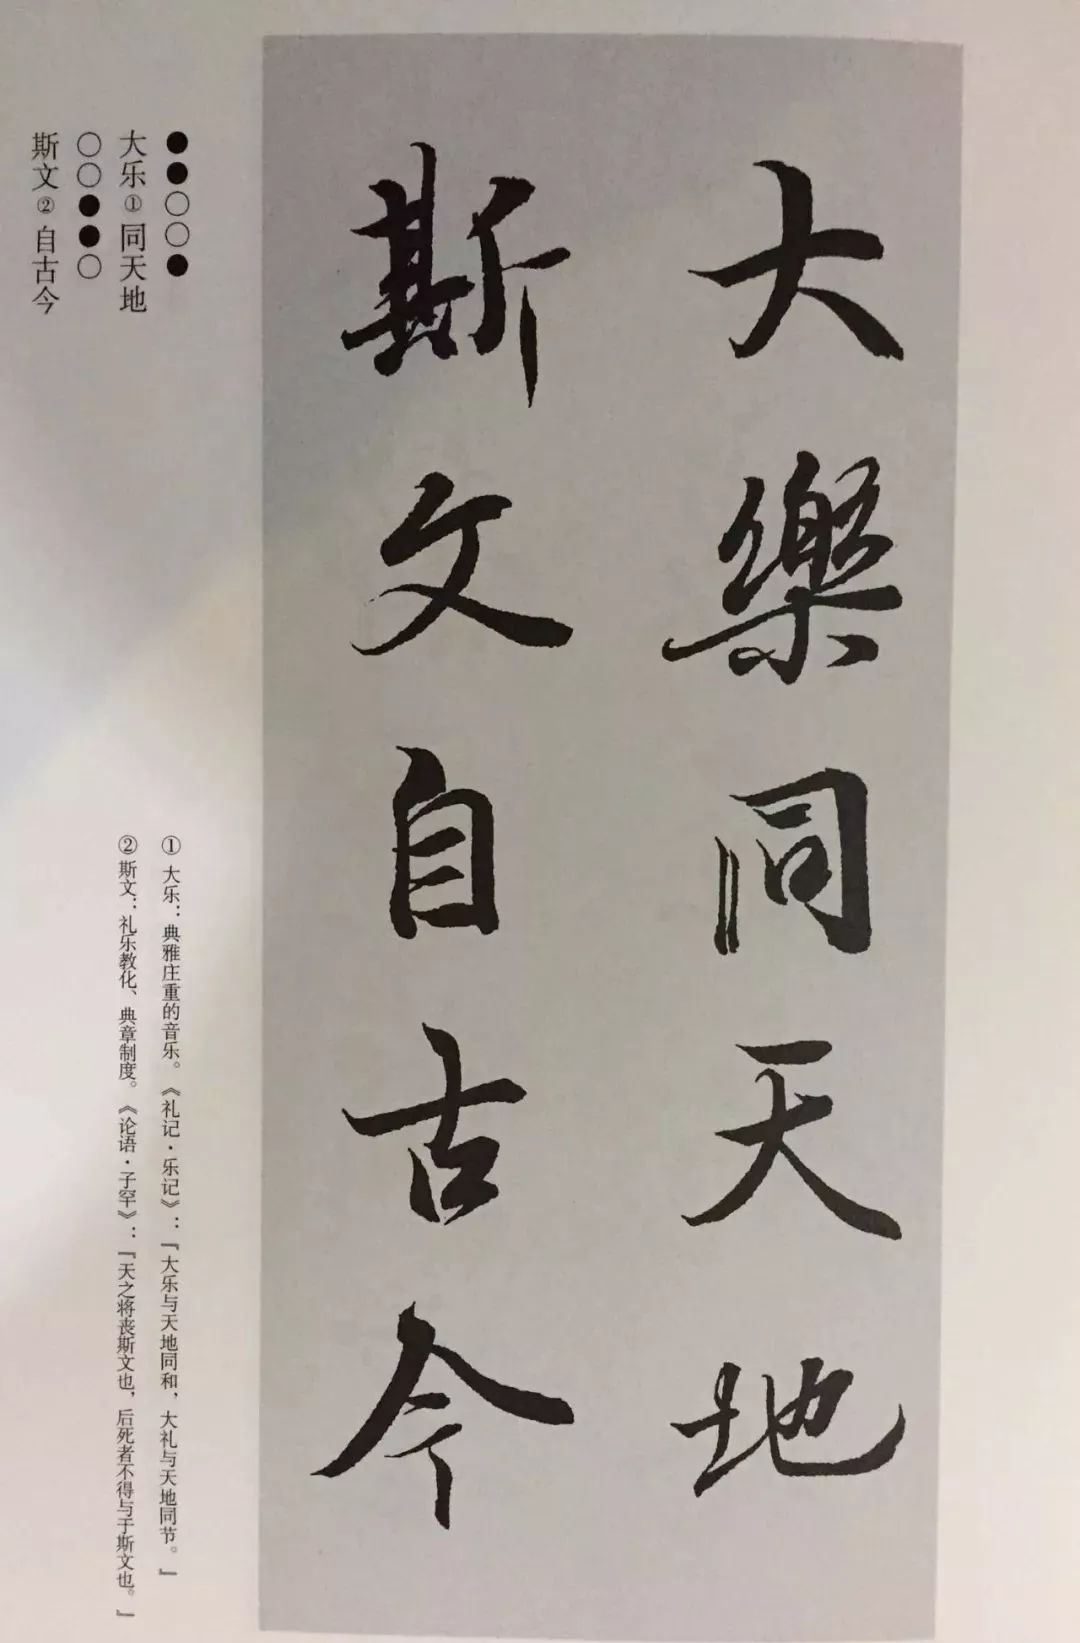 大樂同天地
斯文自古今
●●○○●
大乐①同天地
○○●●○
斯文②自古今
①大乐：典雅庄重的音乐。《礼记·乐记》：『大乐与天地同和，大礼与天地同节。』
②斯文：礼乐教化、典章制度。《论语·子罕》：『天之将丧斯文也，后死者不得与于斯文也。』